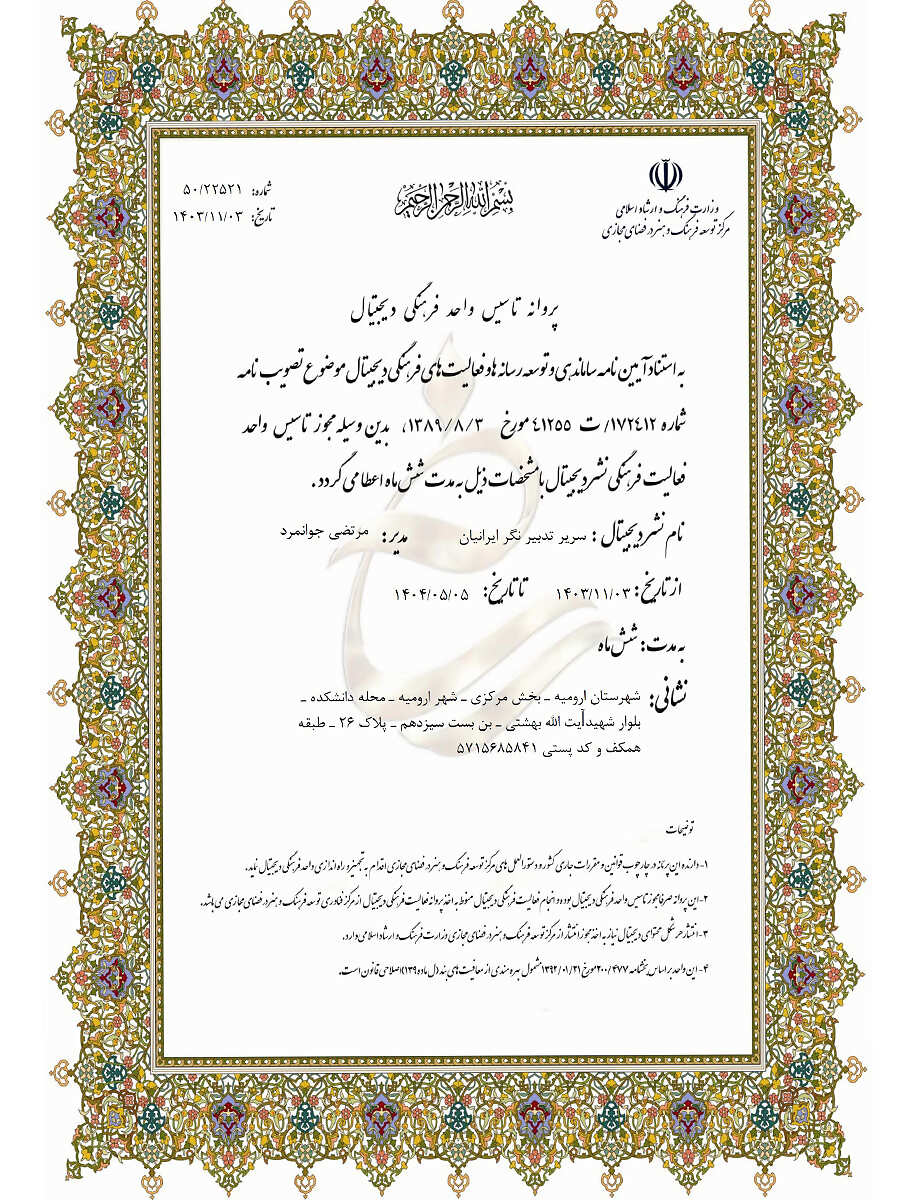 بسم الله الرحمن الرحیم
وزارت فرهنگ و ارشاد اسلامی
مرکز توسعه فرهنگ و هنر در فضای مجازی
شماره: ۵۰/۲۲۵۲۱
تاریخ: ۱۴۰۳/۱۱/۰۳
پروانه تاسیس واحد فرهنگی دیجیتال
به استناد آیین نامه ساماندهی و توسعه رسانه ها و فعالیت های فرهنگی دیجیتال موضوع تصویب نامه
شماره ۱۷۲۴۱۲/ ت ۴۱۲۵۵ مورخ ۱۳۸۹/۸/۳، بدین وسیله مجوز تاسیس واحد
فعالیت فرهنگی نشر دیجیتال با مشخصات ذیل به مدت شش ماه اعطا می گردد.
نام نشر دیجیتال: سریر تدبیر نگر ایرانیان مدیر: مرتضی جوانمرد
از تاریخ: ۱۴۰۳/۱۱/۰۳ تا تاریخ: ۱۴۰۴/۰۵/۰۵
به مدت: شش ماه
نشانی: شهرستان ارومیه ـ بخش مرکزی ـ شهر ارومیه ـ محله دانشکده ـ
بلوار شهیدآیت الله بهشتی ـ بن بست سیزدهم ـ پلاک ۲۶ ـ طبقه
همکف و کد پستی ۵۷۱۵۶۸۵۸۴۱
توضیحات
۱- دارنده این پروانه در چارچوب قوانین و مقررات جاری کشور و دستورالعمل های مرکز توسعه فرهنگ و هنر در فضای مجازی اقدام به تجهیز و راه اندازی واحد فرهنگی دیجیتال نماید.
۲- این پروانه صرفا مجوز تاسیس واحد فرهنگی دیجیتال بوده و انجام فعالیت فرهنگی دیجیتال منوط به اخذ پروانه فعالیت فرهنگی دیجیتال از مرکز فناوری توسعه فرهنگ و هنر در فضای مجازی می باشد.
۳- انتشار هر شکل محتوای دیجیتال نیاز به اخذ مجوز انتشار از مرکز توسعه فرهنگ و هنر در فضای مجازی وزارت فرهنگ و ارشاد اسلامی دارد.
۴- این واحد بر اساس بخشنامه ۲۰۰/۴۷۷ مورخ ۱۳۹۲/۰۱/۲۱ مشمول بهره مندی از معافیت های بند (ل ماده ۱۳۹) اصلاحی قانون است.